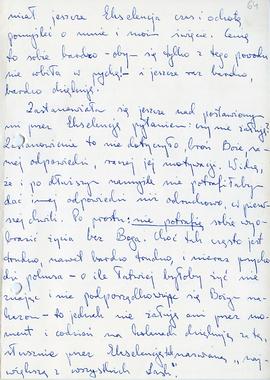 64
miał jeszcze Ekscelencja czas i ochotę
pomyśleć o mnie i moim święcie. Cenię
to sobie bardzo - oby się tylko z tego powodu
nie wbiła w pychę! - i jeszcze raz bardzo,
bardzo dziękuję.
Zastanawiałam się jeszcze nad postawionym
mi przez Ekscelencję pytaniem: czy nie żałuję?
Zastanowienie to nie dotyczyło, broń Boże, sa-
mej odpowiedzi, raczej jej motywacji. Widzę,
że i po dłuższym namyśle nie potrafiłaby
dać innej odpowiedzi niż odruchowo, w pierw-
szej chwili. Po prostu: nie potrafię sobie wyo-
brazić życia bez Boga. Choć tak często jest
trudno, nawet bardzo trudno, i nieraz przycho-
dzi pokusa - o ile łatwiej byłoby żyć nie
znając i nie podporządkowując się Bożym na-
kazom - to jednak nie żałuję ani przez mo-
ment i codzień na kolanach dziękuję za tę,
słusznie przez Ekscelencję nazwaną, "naj-
większą z wszystkich Łask".